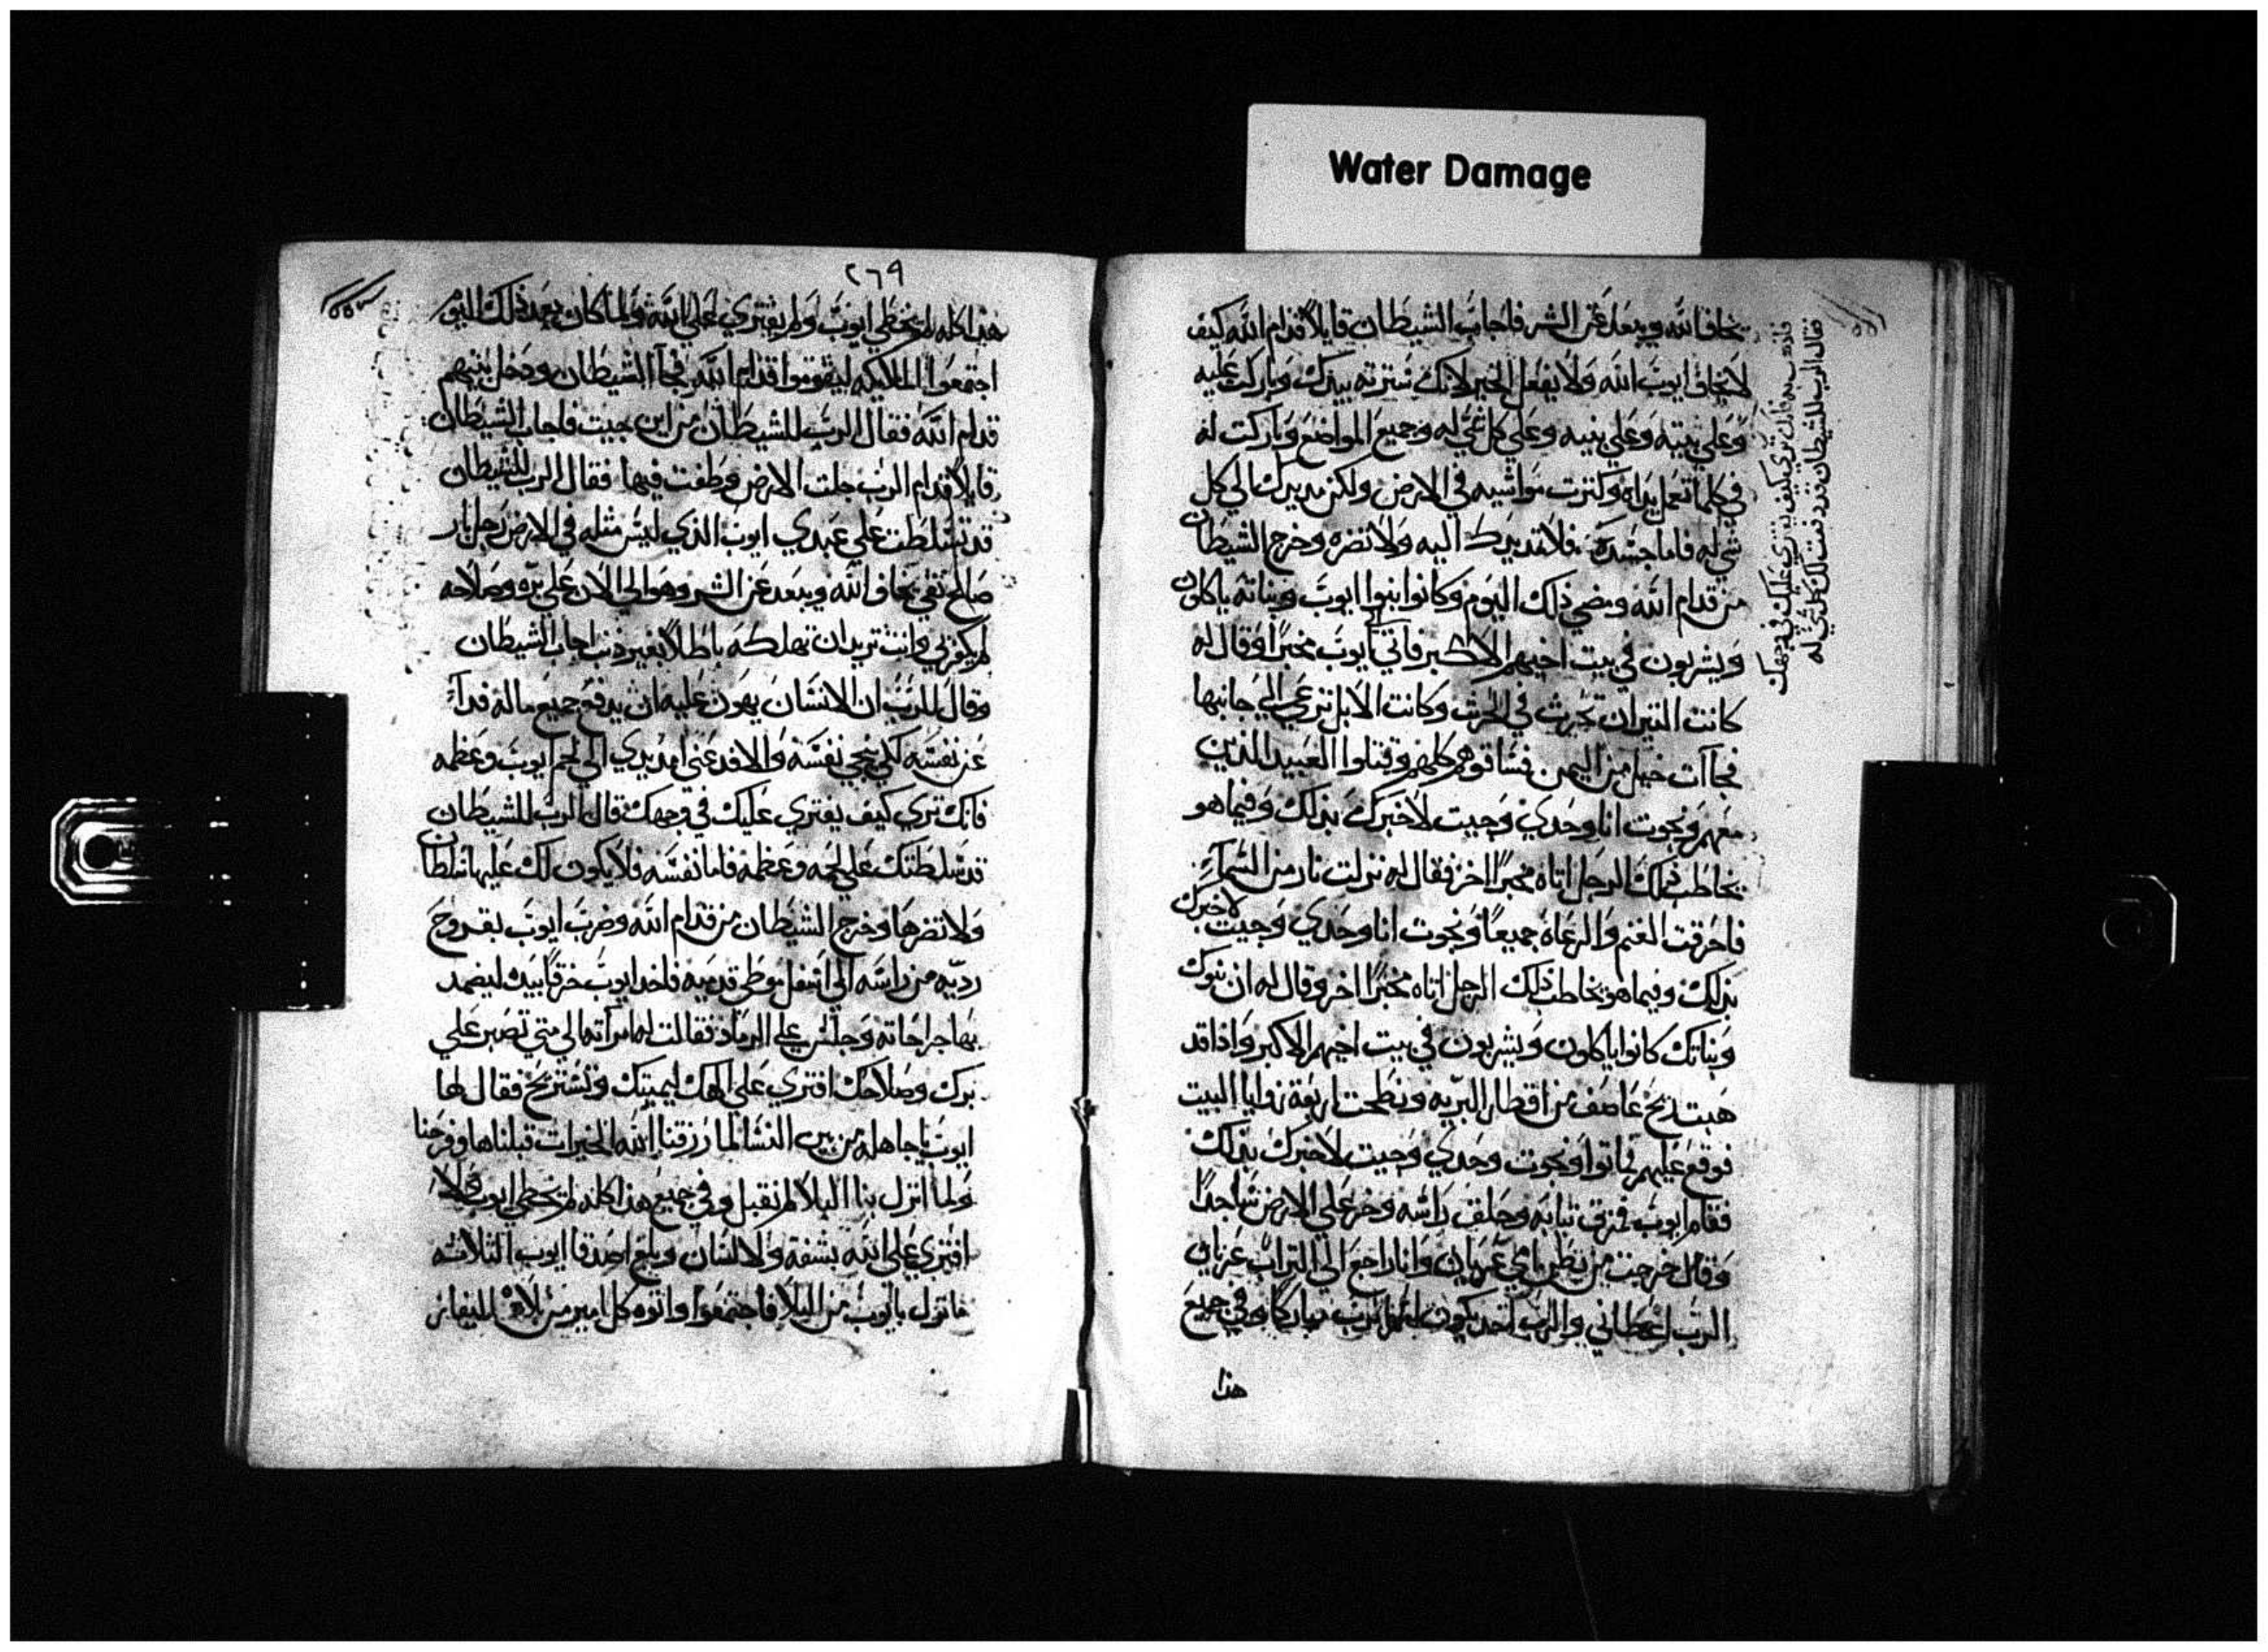 Water Damage
يخاف الله ويبعد عن الشر فاجاب الشيطان قايلا قدام الله كيف
لا يخاف ايوب الله ولا يفعل الخير لانك سترته بيدك وباركت عليه
وعلي بيته وعلي بنيه وعلي كل شي له وجميع المواضع وباركت له
في كلما تعمل يداه وكثرت مواشيه في الارض ولكن مد يدك الي كل
شي له فاما جسده فلا تمد يدك اليه ولا تضره وخرج الشيطان
من قدام الله ومضي ذلك اليوم وكانوا بنوا ايوب وبناته ياكلون
ويشربون في بيت اخيهم الاكبر فاتي الي ايوب مخبرا وقال له
كانت الثيران تحرث في الحرث وكانت الابل ترعي الي جانبها
فجاات خيل من اليمن فساقوهم كلهم وقتلوا العبيد الذين
معهم ونجوت انا وحدي وجيت لاخبرك بذلك وفيما هو
يخاطب ذلك الرجل اتاه مخبرا اخر فقال له نزلت نار من السماء
فاحرقت الغنم والرعاه جميعا ونجوت انا وحدي وجيت لاخبرك
بذلك وفيما هو يخاطب ذلك الرجل اتاه مخبرا اخر وقال له ان بنوك
وبناتك كانوا ياكلون ويشربون في بيت اخيهم الاكبر واذا قد
هبت ريح عاصف من اقطار البريه ونطحت اربعة زوايا البيت
فوقع عليهم فماتوا ونجوت وحدي وجيت لاخبرك بذلك
فقام ايوب فمزق ثيابه وحلق راسه وخر علي الارض ساجدا
وقال خرجت من بطن امي عريان وانا راجع الي التراب عريان
الرب اعطاني والرب اخذ يكون اسم الرب مباركا وفي جميع
هذا
فقال الرب للشيطان قد دفعت لك كل شي له
فانك تري كيف يفتري عليك في وجهك
٢٦٩
هذا كله لم يخطي ايوب ولم يفتري علي الله ولما كان بعد ذلك اليوم
اجتمعوا الملايكه ليقوموا قدام الله فجا الشيطان ودخل بينهم
قدام الله فقال الرب للشيطان من اين جيت فاجاب الشيطان
قايلا قدام الرب جلت الارض وطفت فيها فقال الرب للشيطان
قد تسلطت علي عبدي ايوب الذي ليس مثله في الارض رجل بار
صالح تقي يخاف الله ويبعد عن الشر وهو الي الان علي بره وصلاحه
لم يكفر بي وانت تريد ان تهلكه باطلا بغير ذنب اجاب الشيطان
وقال للرب ان الانسان يهون عليه ان يدفع جميع ماله فداء
عن نفسه لكي ينجي نفسه والا فدعني امد يدي الي لحم ايوب وعظمه
فانك تري كيف يفتري عليك في وجهك قال الرب للشيطان
قد سلطتك علي لحمه وعظمه فاما نفسه فلا يكون لك عليها سلطان
ولا تضرها وخرج الشيطان من قدام الله وضرب ايوب بقروح
رديه من راسه الي اسفل موطي قدميه فاخذ ايوب خرقا بيده ليضمد
بها جراحاته وجلس علي الرماد فقالت له امراته الي متي تصبر علي
برك وصلاحك افتري علي الهك ليميتك وتستريح فقال لها
ايوب يا جاهله من بين النسا لما رزقنا الله الخيرات قبلناها وفرحنا
ولما انزل بنا البلا لم نقبل وفي جميع هذا كله لم يخطي ايوب ولا
افتري علي الله بشفة ولا لسان وبلغ اصدقا ايوب الثلاثه
ما نزل بايوب من البلا فاجتمعوا واتوه كل امير من بلاده اليفاز